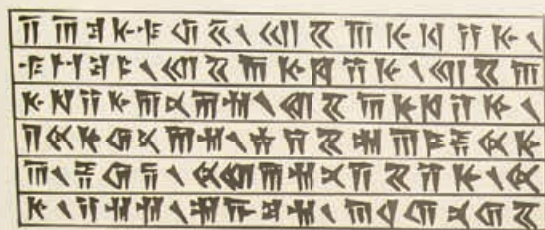 𐎭𐎠𐎼𐎹𐎺𐎢𐏁𐏐𐎧𐏁𐎠𐎹𐎰𐎡𐎹𐏐
𐎺𐏀𐎼𐎣𐏐𐎧𐏁𐎠𐎹𐎰𐎡𐎹𐏐𐎧𐏁𐎠
𐎹𐎰𐎡𐎹𐎠𐎴𐎠𐎶𐏐𐎧𐏁𐎠𐎹𐎰𐎡𐎹𐏐
𐎭𐏃𐎹𐎢𐎴𐎠𐎶𐏐𐎻𐎡𐏁𐎫𐎠𐎿𐎱𐏃𐎹
𐎠𐏐𐎱𐎢𐏂𐏐𐏃𐎧𐎠𐎶𐎴𐎡𐏁𐎡𐎹𐏐𐏃
𐎹𐏐𐎡𐎶𐎶𐏐𐎫𐎨𐎼𐎶𐏐𐎠𐎤𐎢𐎴𐎢𐏁